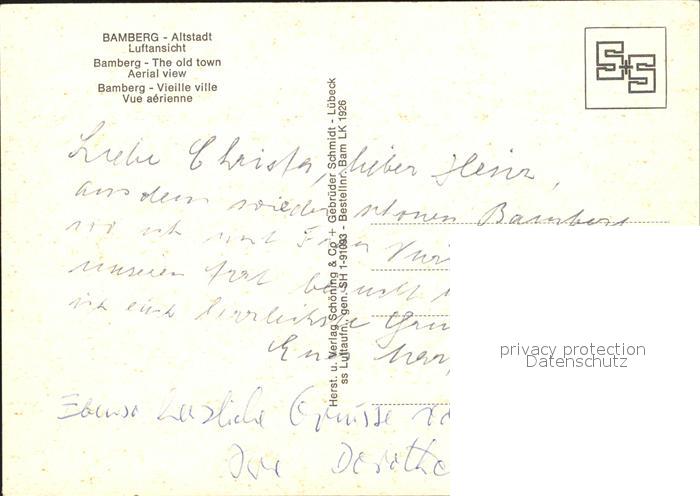 BAMBERG - Altstadt
Luftansicht
Bamberg - The old town
Aerial view
Bamberg - Vieille ville
Vue aérienne
S+S
Herst. u. Verlag Schöning & Co + Gebrüder Schmidt - Lübeck
ss Luftaufn., gen. SH 1-91093 - Bestellnr. Bam LK 1926
Liebe Christa, lieber Heinz,
aus dem wieder schönen Bamberg
wo ich mit
unseren besucht
ich euch herzlichste Grü
Euer
Ebenso herzliche Grüsse
Dorothe
privacy protection
Datenschutz